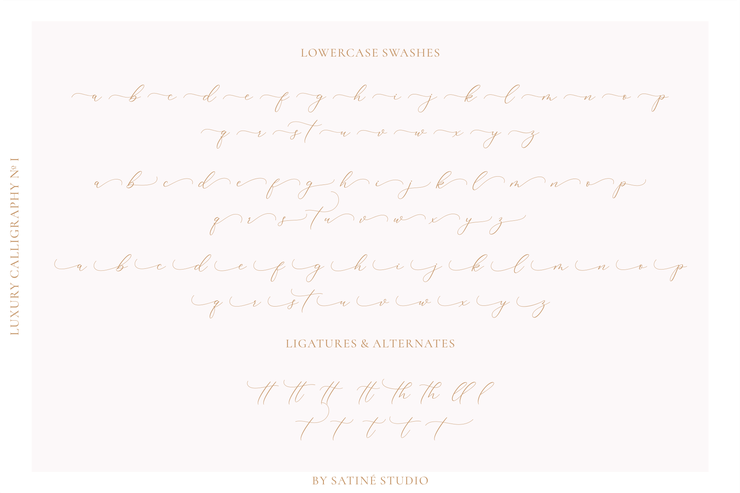 LOWERCASE SWASHES
a b c d e f g h i j k l m n o p
q r s t u v w x y z
a b c d e f g h i j k l m n o p
q r s t u v w x y z
a b c d e f g h i j k l m n o p
q r s t u v w x y z
LIGATURES & ALTERNATES
tt tt tt tt th th ll l
t t t t t
LUXURY CALLIGRAPHY Nº 1
BY SATINÉ STUDIO